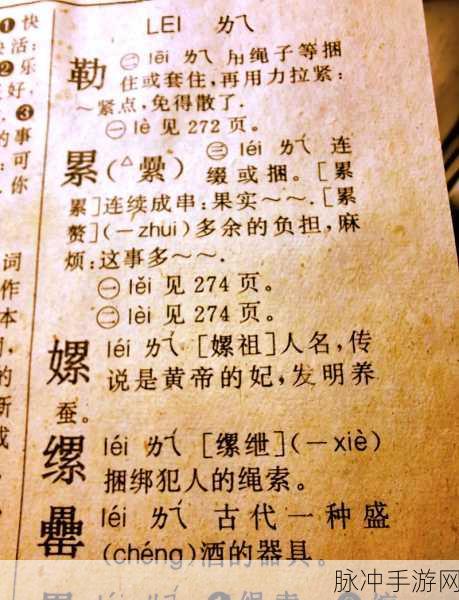 ❶快
快活:
❷乐
好,
❸
的事
:可
你
词
作
本
的
新
成
LEI ㄌㄟ
勒 ㊁ lēi ㄌㄟ 用绳子等捆
住或套住,再用力拉紧:
～紧点,免得散了.
㊀ lè 见 272 页。
累(△纍) ㊂ léi ㄌㄟ 连
缀或捆。[累
累]连续成串:果实～～.[累
赘](－zhui)多余的负担,麻
烦:这事多～～.
㊀ lěi 见 274 页。
㊁ lèi 见 274 页。
嫘 léi ㄌㄟ [嫘祖]人名,传
说是黄帝的妃,发明养
蚕。
缧 léi ㄌㄟ [缧绁](－xiè)
捆绑犯人的绳索。
罍 léi ㄌㄟ 古代一种盛
(chéng)酒的器具。
脉冲手游网